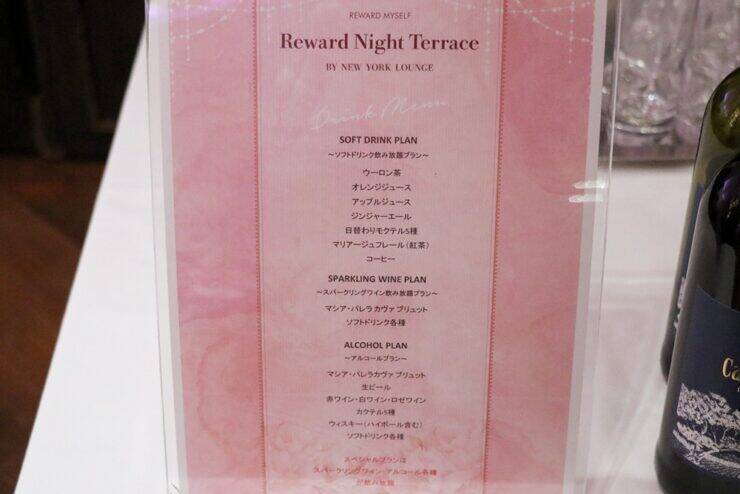 REWARD MYSELF
Reward Night Terrace
BY NEW YORK LOUNGE
Drink Menu
SOFT DRINK PLAN
～ソフトドリンク飲み放題プラン～
ウーロン茶
オレンジジュース
アップルジュース
ジンジャーエール
日替わりモクテル5種
マリアージュフレール（紅茶）
コーヒー
SPARKLING WINE PLAN
～スパークリングワイン飲み放題プラン～
マシア・パレラ カヴァ ブリュット
ソフトドリンク各種
ALCOHOL PLAN
～アルコールプラン～
マシア・パレラカヴァ ブリュット
生ビール
赤ワイン・白ワイン・ロゼワイン
カクテル5種
ウィスキー（ハイボール含む）
ソフトドリンク各種
スペシャルプランは
スパークリングワイン・アルコール各種
が飲み放題